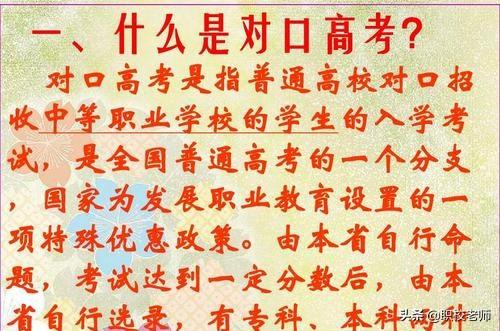 一、什么是对口高考?
对口高考是指普通高校对口招
收中等职业学校的学生的入学考
试，是全国普通高考的一个分支
，国家为发展职业教育设置的一
项特殊优惠政策。由本省自行命
题，考试达到一定分数后，由本
省自行选录，有专科、本科
头条@职校老师